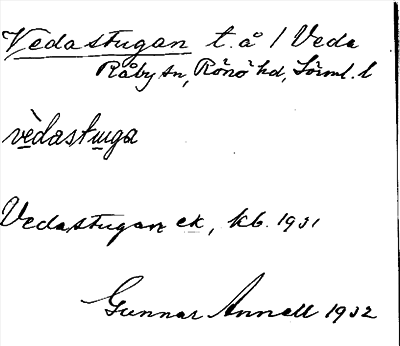 Vedastugan t.å / Veda
Råby sn, Rönö hd, Sörml. l
vèdastuga
Vedastugan ek, kb. 1931
Gunnar Annell 1932